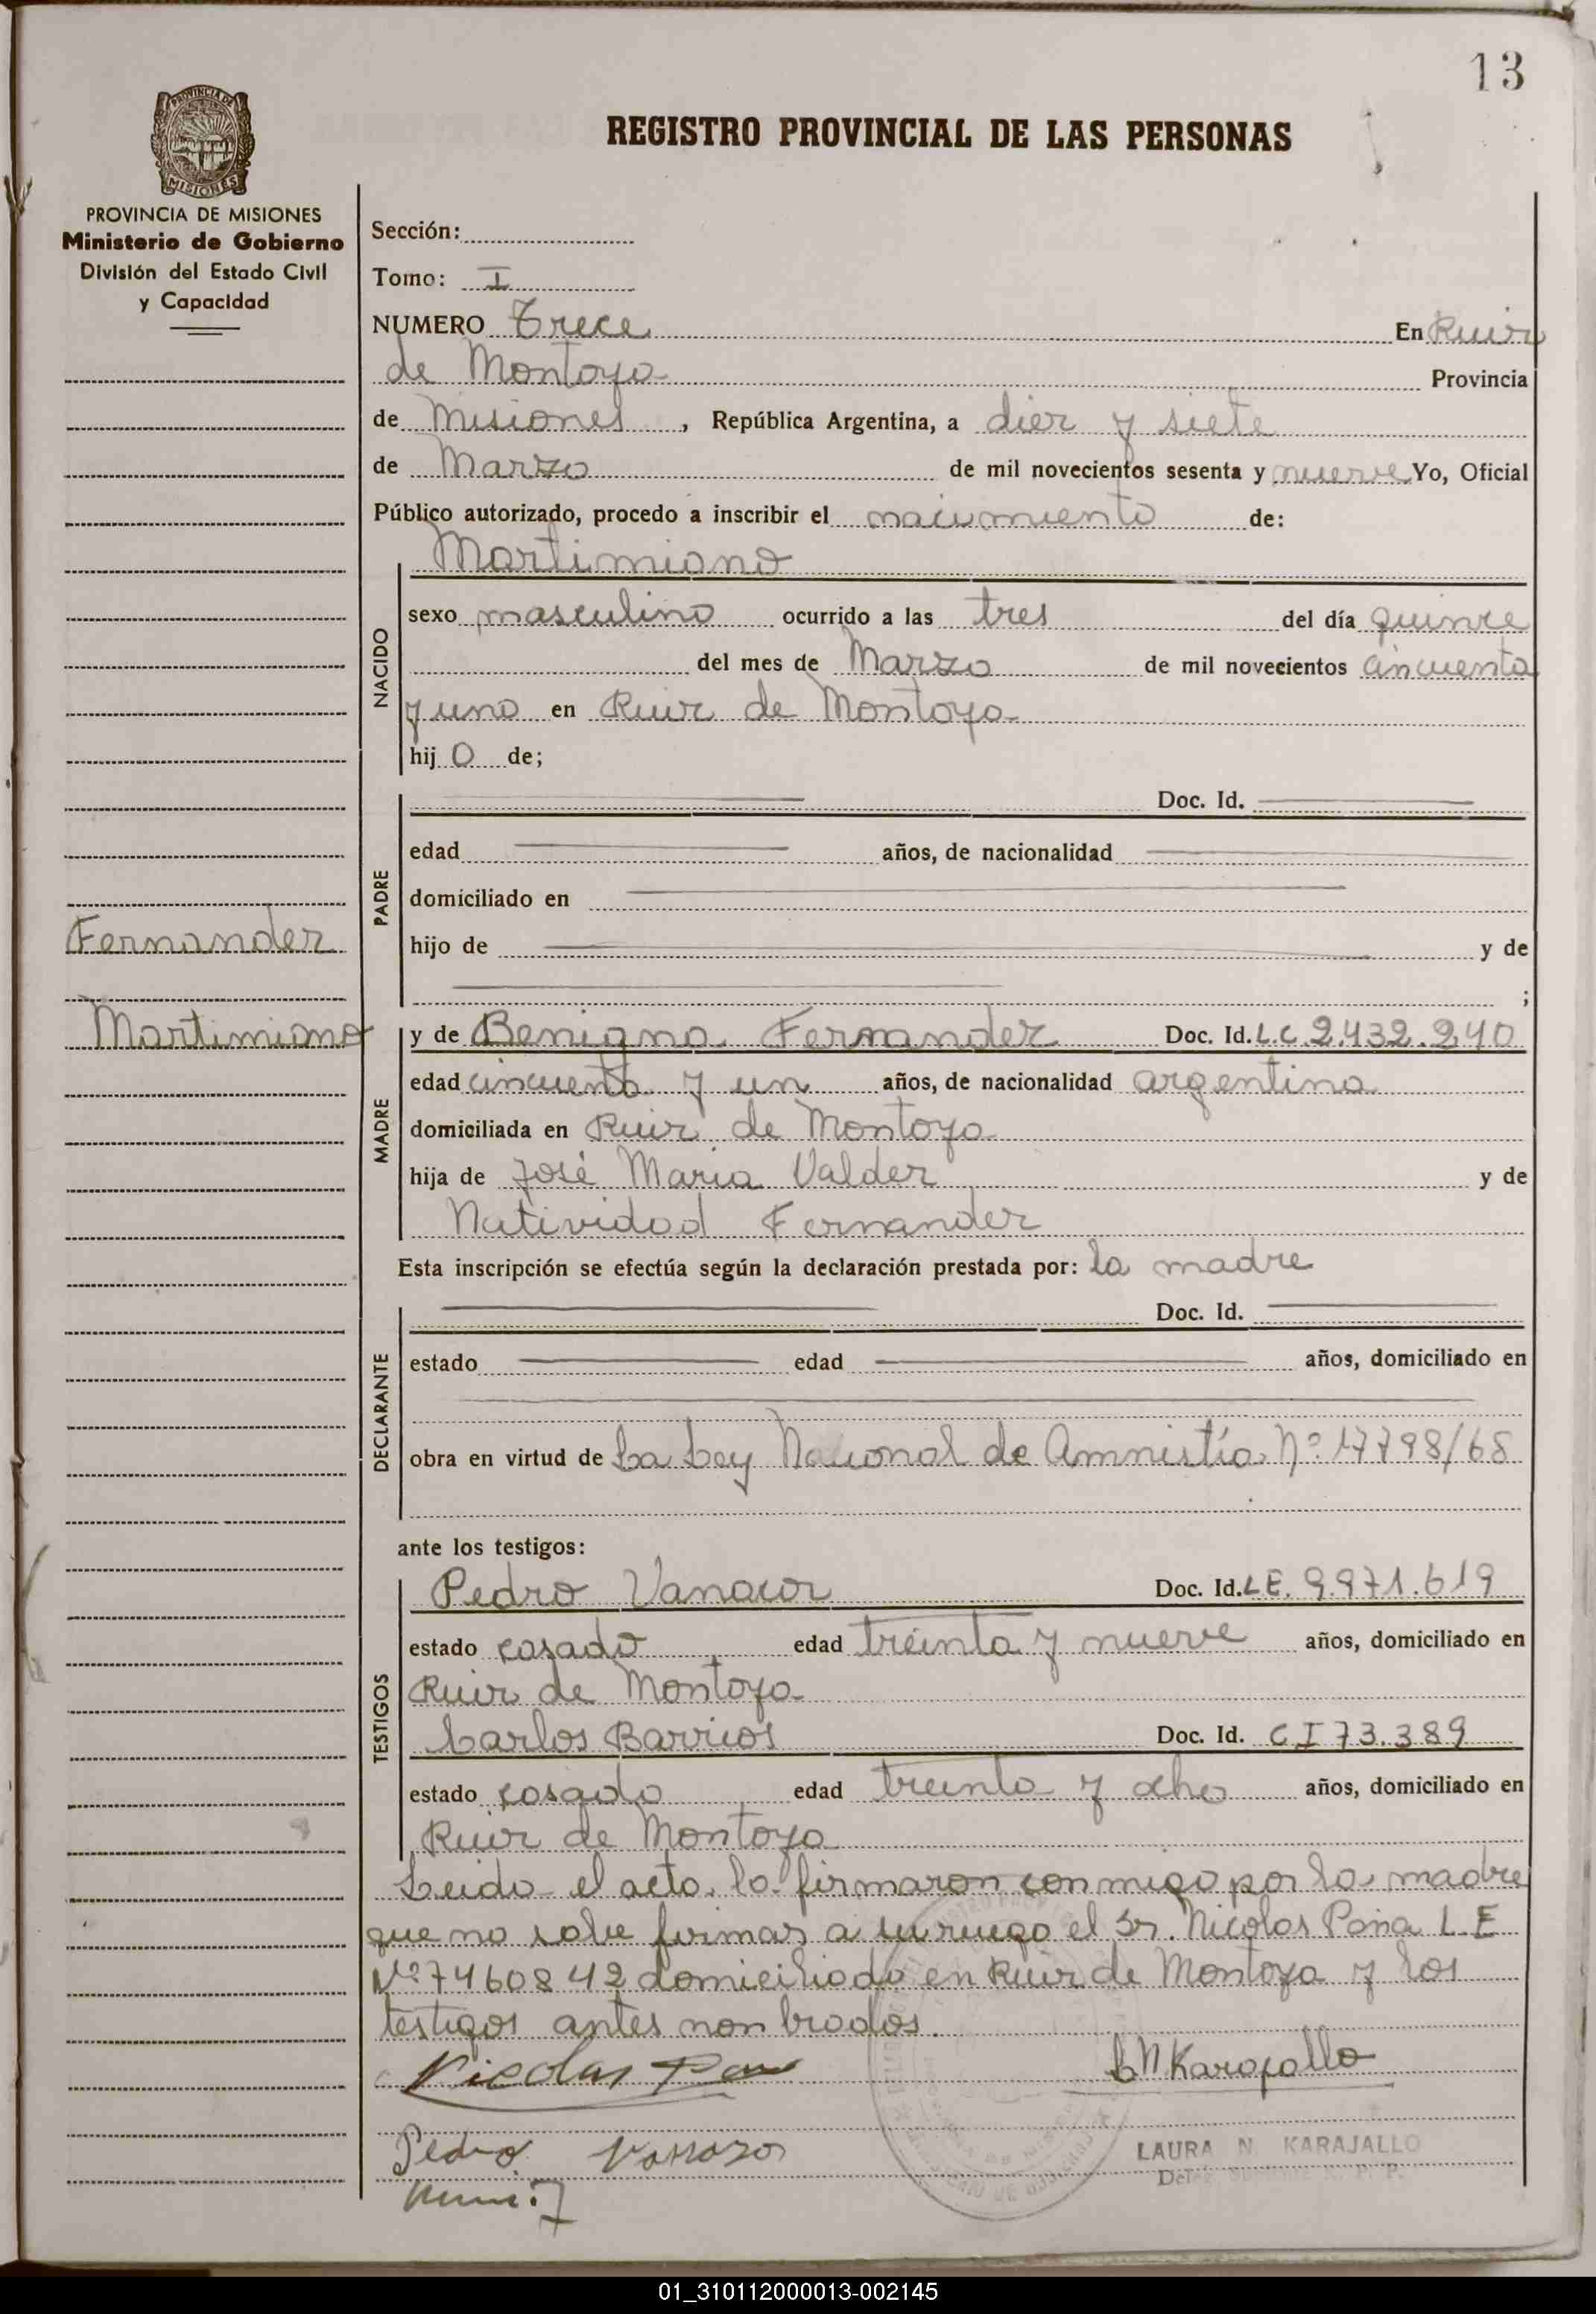 13
PROVINCIA DE MISIONES
REGISTRO PROVINCIAL DE LAS PERSONAS
PROVINCIA DE MISIONES
Ministerio de Gobierno
División del Estado Civil
y Capacidad
Sección:
Tomo: I
NUMERO Trece En Ruiz
de Montoya Provincia
de Misiones, República Argentina, a diez y siete
de Marzo de mil novecientos sesenta y nueve Yo, Oficial
Público autorizado, procedo a inscribir el nacimiento de:
NACIDO
Martimiano
sexo masculino ocurrido a las tres del día quince
del mes de Marzo de mil novecientos cincuenta
y uno en Ruiz de Montoya
hijo de;
PADRE
Doc. Id.
edad años, de nacionalidad
domiciliado en
hijo de y de
;
Fernandez
Martimiano
MADRE
y de Benigna Fernandez Doc. Id. L.C. 2.432.240
edad cincuenta y un años, de nacionalidad argentina
domiciliada en Ruiz de Montoya
hija de José Maria Valdez y de
Natividad Fernandez
Esta inscripción se efectúa según la declaración prestada por: la madre
DECLARANTE
Doc. Id.
estado edad años, domiciliado en
obra en virtud de La Ley Nacional de Amnistía Nº 17798/68
ante los testigos:
TESTIGOS
Pedro Doc. Id. LE. 9.971.619
estado casado edad treinta y nueve años, domiciliado en
Ruiz de Montoya
Carlos Barrios Doc. Id. C I 73.389
estado casado edad treinta y ocho años, domiciliado en
Ruiz de Montoya
Leida el acta, la firmaron conmigo por la madre
que no sabe firmar a su ruego el Sr. Nicolas L E
Nº 7460842 domiciliado en Ruiz de Montoya y los
testigos antes nonbrados.
Nicolas
L N Karajallo
Pedro
LAURA N. KARAJALLO
01_310112000013-002145